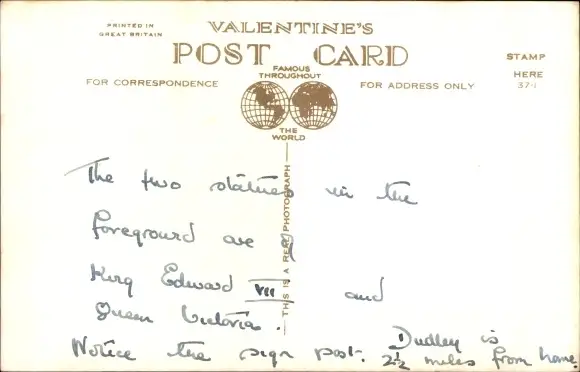 PRINTED IN
GREAT BRITAIN
VALENTINE'S
POST CARD
STAMP
HERE
374
FOR CORRESPONDENCE
FAMOUS
THROUGHOUT
THE
WORLD
FOR ADDRESS ONLY
THIS IS A REAL PHOTOGRAPH
The two statues in the
foreground are of
King Edward VII and
Queen Victoria.
Notice the sign post. Dudley is
2½ miles from home.